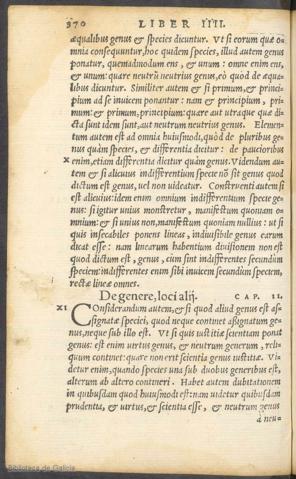 370 LIBER IIII.
æqualibus genus & species dicuntur. Vt si eorum quæ o-
mnia consequuntur, hoc quidem species, illud autem genus
ponatur, quemadmodum ens, & unum: omne enim ens,
& unum: quare neutrũ neutrius genus, eò quòd de æqua-
libus dicuntur. Similiter autem & si primum, & princi-
pium ad se inuicem ponantur: nam & principium, pri-
mum: & primum, principium: quare aut utraque quæ di-
cta sunt idem sunt, aut neutrum neutrius genus. Elemen-
tum autem est ad omnia huiusmodi, quòd de pluribus ge-
nus quàm species, & differentia dicitur: de paucioribus
x enim, etiam differentia dicitur quàm genus. Videndum au-
tem & si alicuius indifferentium specie nõ sit genus quod
dictum est genus, uel non uideatur. Construenti autem si
est alicuius: idem enim omnium indifferentium specie ge-
nus: si igitur unius monstretur, manifestum quoniam o-
mnium: & si unius non, manifestum quoniam nullius: ut si
quis insecabiles ponens lineas, indiuisibile genus earum
dicat esse: nam linearum habentium diuisionem non est
quod dictum est, genus, cùm sint indifferentes secundùm
speciem: indifferentes enim sibi inuicem secundùm speciem,
rectæ lineæ omnes.
De genere, loci alij. CAP. II.
XI Considerandum autem, & si quod aliud genus est as-
signatæ speciei, quod neque continet assignatum ge-
nus, neque sub illo est. Vt si quis iustitiæ scientiam ponat
genus: est enim uirtus genus, & neutrum generum, reli-
quum continet: quare non erit scientia genus iustitiæ. Vi-
detur enim, quando species una sub duobus generibus est,
alterum ab altero contineri. Habet autem dubitationem
in quibusdam quod huiusmodi est: nam uidetur quibusdam
prudentia, & uirtus, & scientia esse, & neutrum genus
à neu-
Biblioteca de Galicia